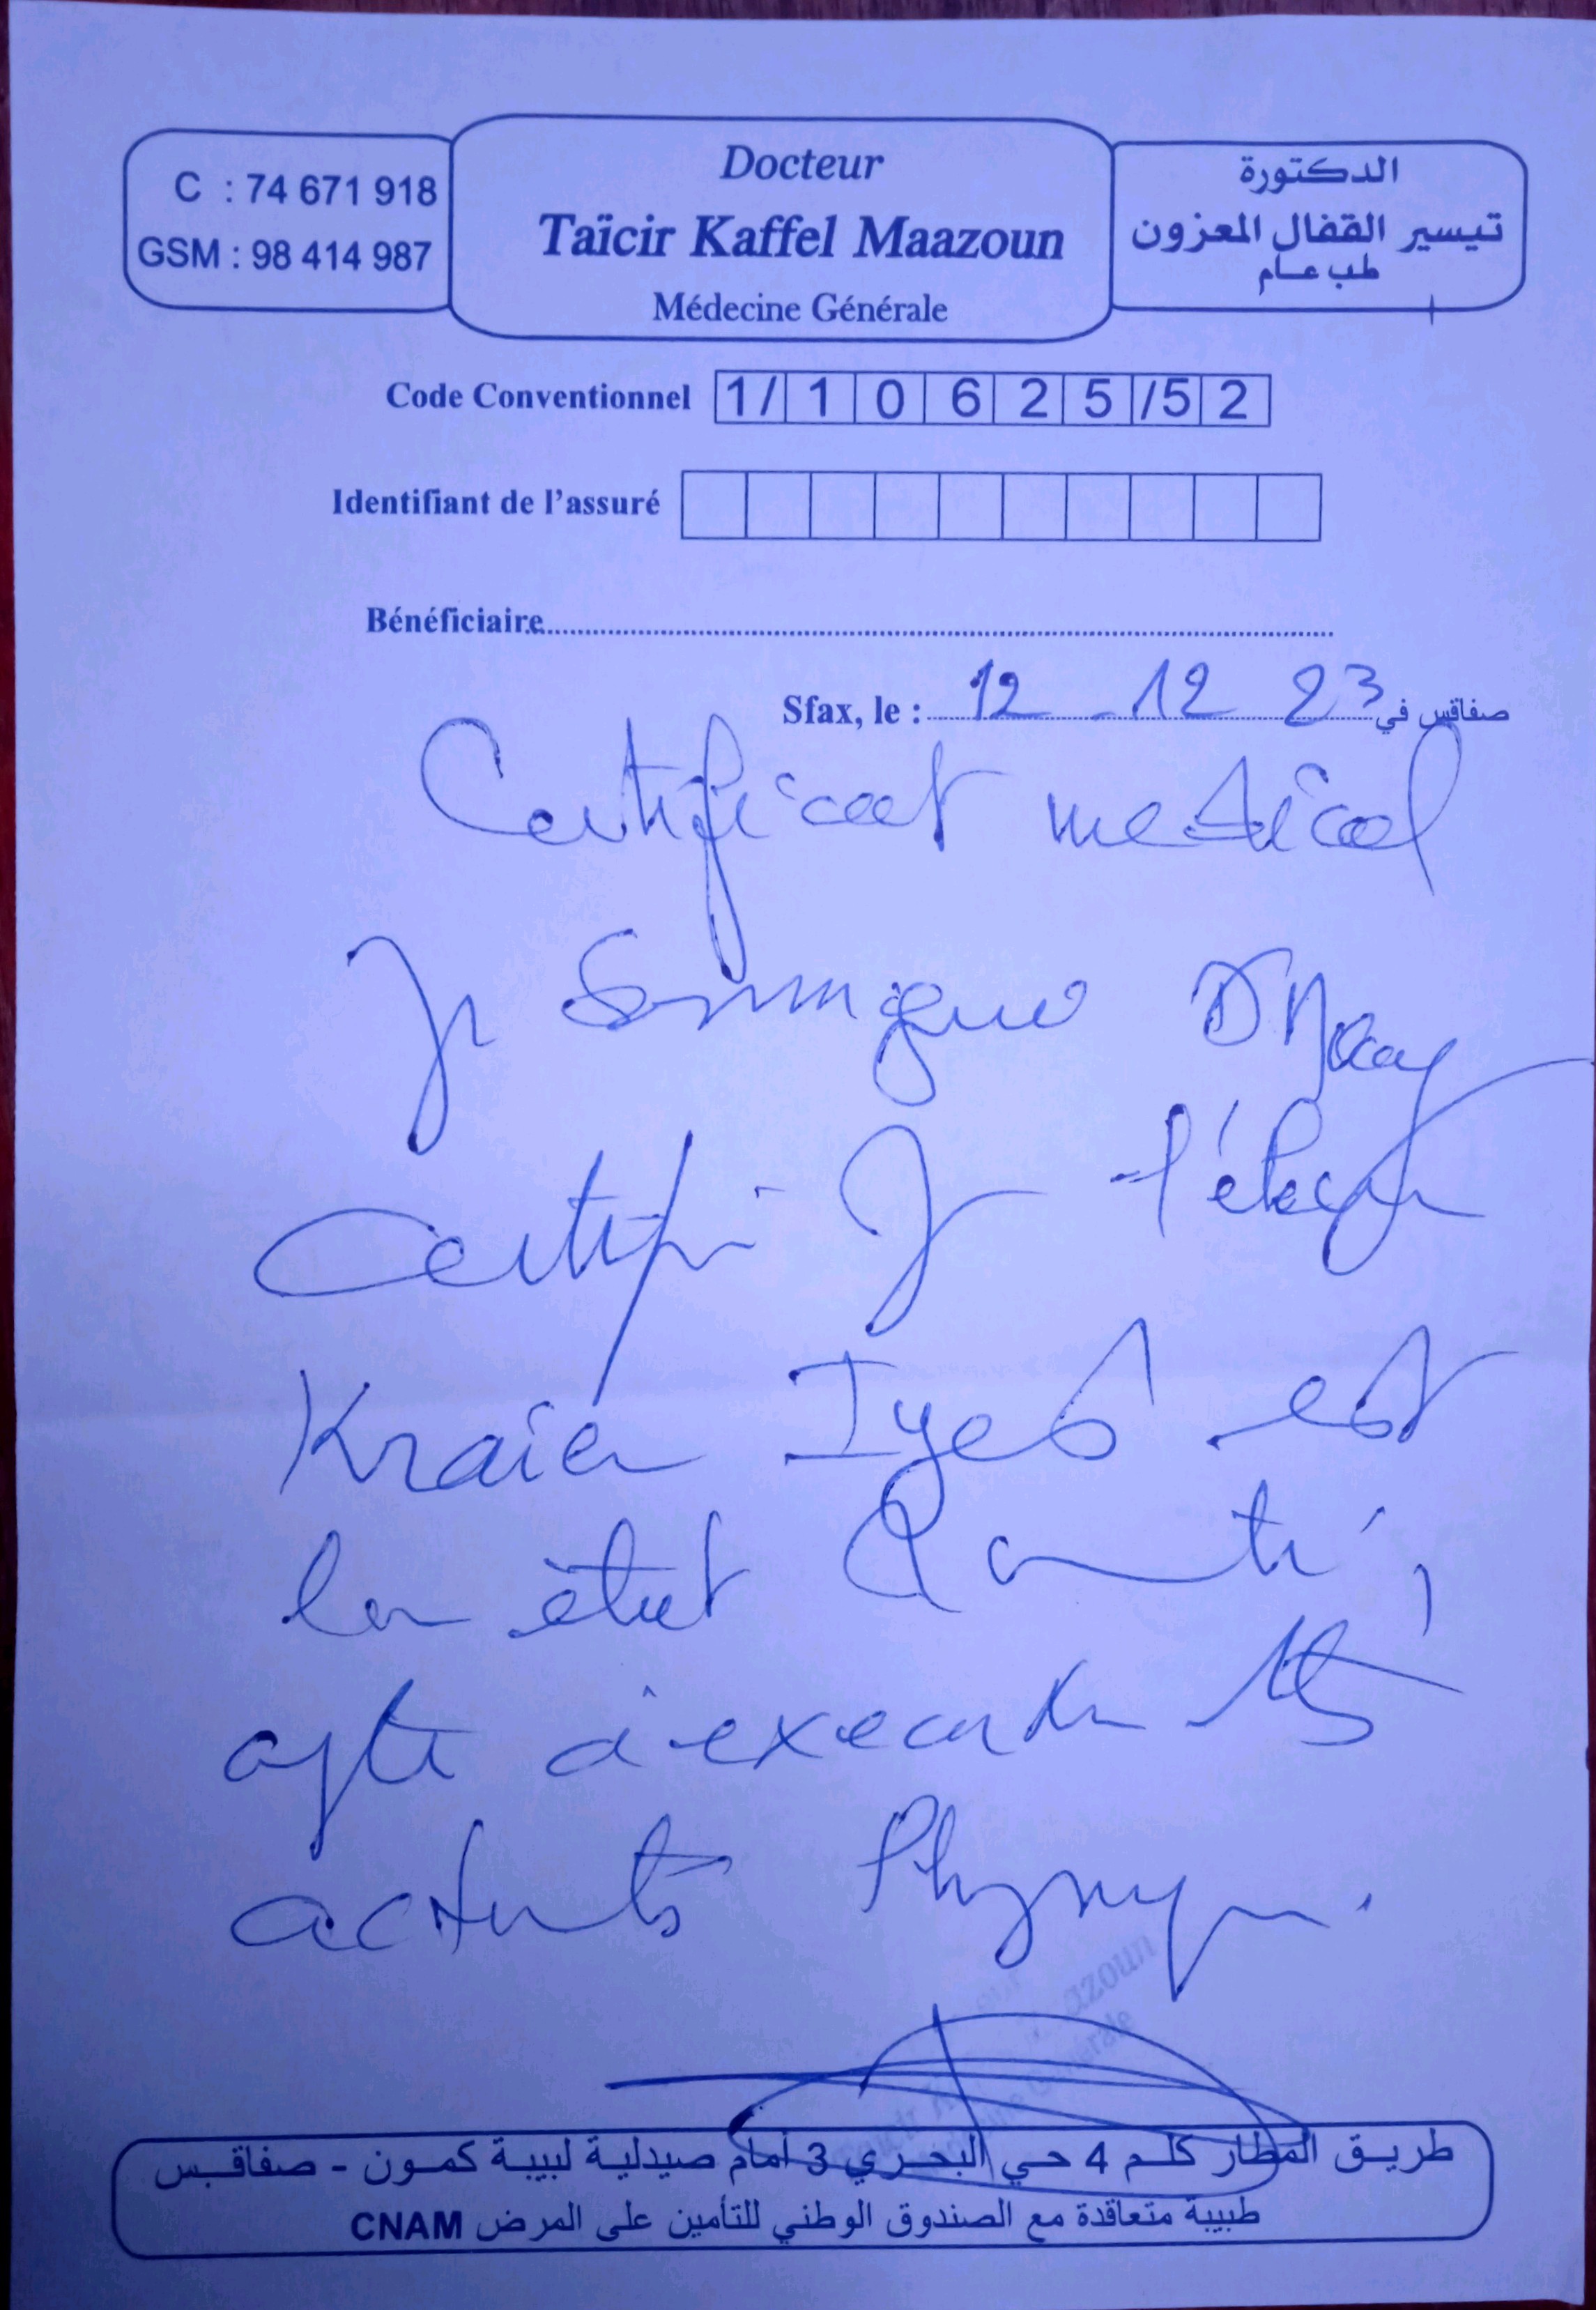 C : 74 671 918
GSM : 98 414 987
Docteur
Taïcir Kaffel Maazoun
Médecine Générale
الدكتورة
تيسير القفال المعزون
طب عام
Code Conventionnel 1/10625/52
Identifiant de l'assuré
Bénéficiaire
Sfax, le : 12 - 12 23 صفاقس في
Certificat medical
Je Soussigné
Certifie l'élève
Kraiem Iyes est
en état Santé,
apte à executer
activités Physiques.
azoun
طريق المطار كلم 4 حي البحري 3 أمام صيدلية لبيبة كمون - صفاقس
طبيبة متعاقدة مع الصندوق الوطني للتأمين على المرض CNAM